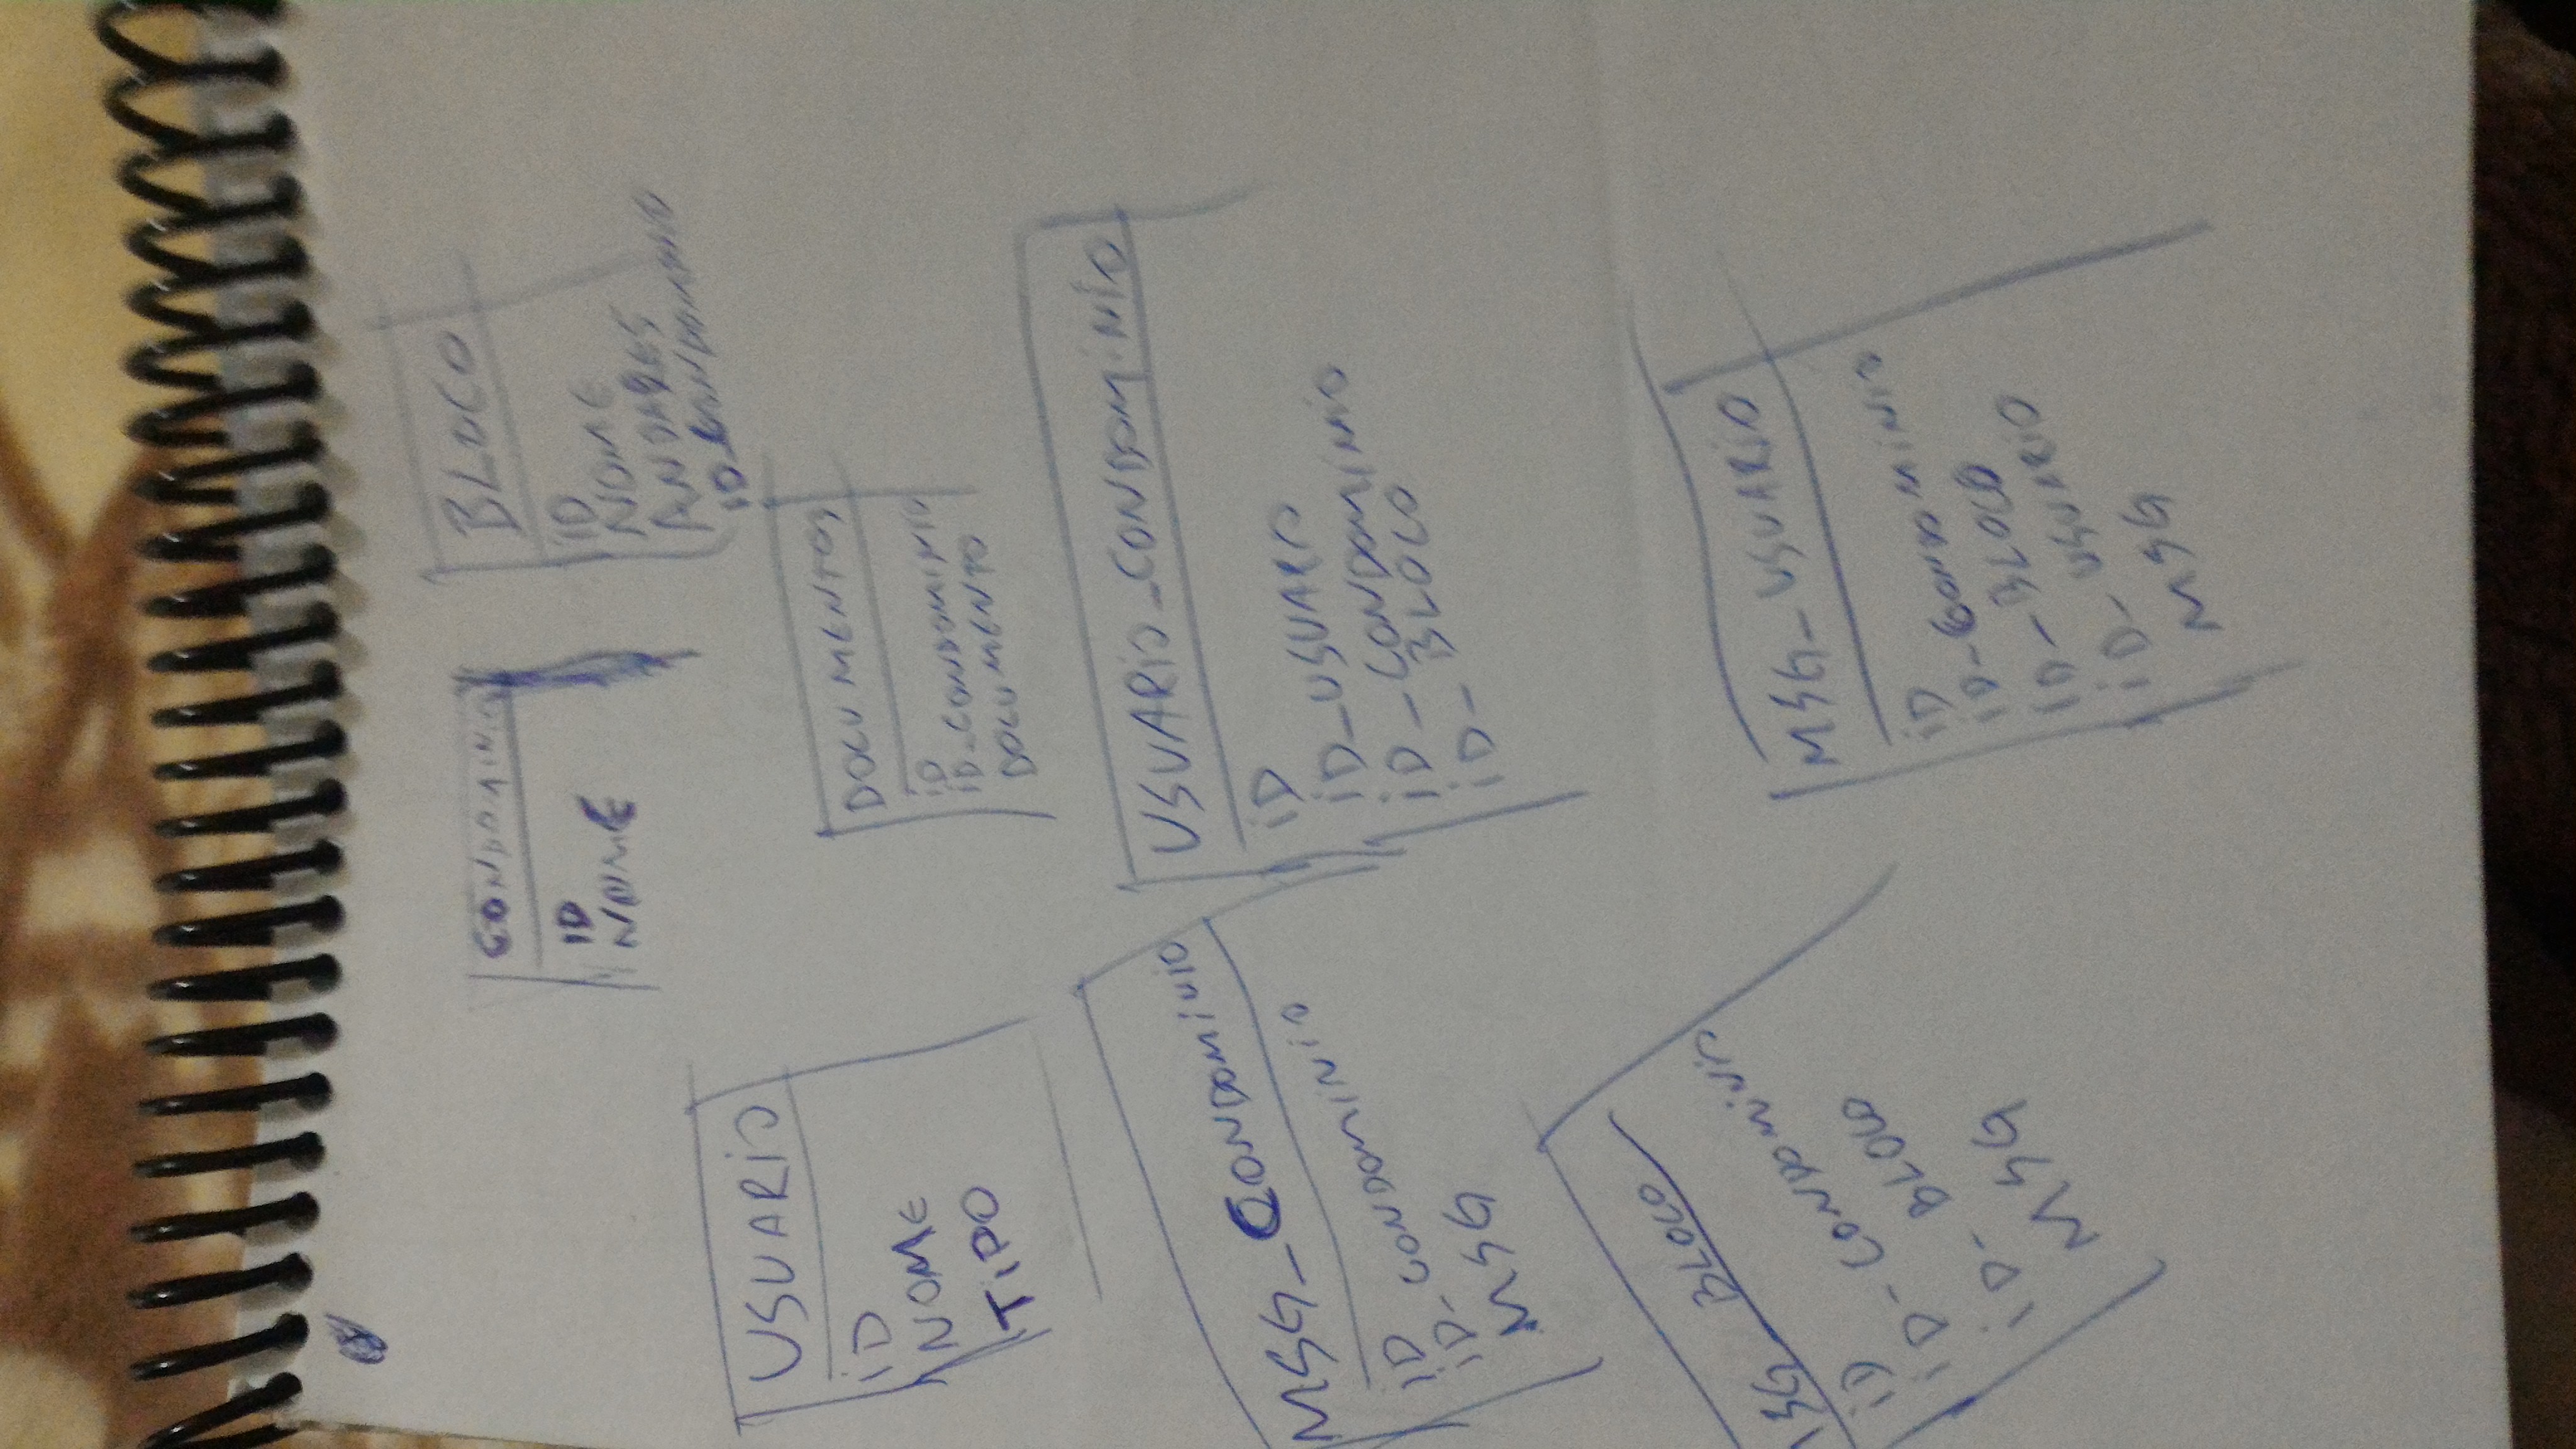 CONDOMINIO
ID
NOME
BLOCO
ID
NOME
ANDARES
ID_CONDOMINIO
USUARIO
ID
NOME
TIPO
DOCUMENTOS
ID
ID_CONDOMINIO
DOCUMENTO
MSG_CONDOMINIO
ID
ID_CONDOMINIO
MSG
USUARIO_CONDOMINIO
ID
ID_USUARIO
ID_CONDOMINIO
ID_BLOCO
MSG_BLOCO
ID
ID_CONDOMINIO
ID_BLOCO
MSG
MSG_USUARIO
ID
ID_CONDOMINIO
ID_BLOCO
ID_USUARIO
MSG